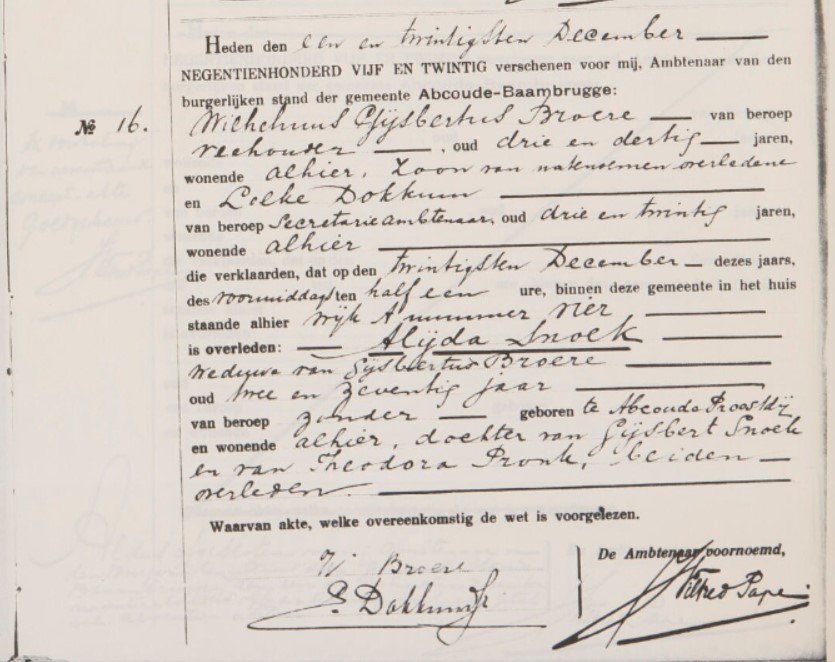 Heden den een en twintigsten December
NEGENTIENHONDERD VIJF EN TWINTIG verschenen voor mij, Ambtenaar van den
burgerlijken stand der gemeente Abcoude-Baambrugge:
№ 16. Wilhelmus Gijsbertus Broere van beroep
veehouder, oud drie en dertig jaren,
wonende alhier, Zoon van natenoemen overledene
en Lolke Dokkum
van beroep Secretarieambtenaar, oud drie en twintig jaren,
wonende alhier
die verklaarden, dat op den twintigsten December dezes jaars,
des voormiddags ten half een ure, binnen deze gemeente in het huis
staande alhier wijk A nummer vier
is overleden: Alijda Snoek
weduwe van Gijsbertus Broere
oud twee en zeventig jaar
van beroep zonder geboren te Abcoude Proostdij
en wonende alhier, dochter van Gijsbert Snoek
en van Theodora Pronk, beiden
overleden.
Waarvan akte, welke overeenkomstig de wet is voorgelezen.
De Ambtenaar voornoemd,
W Broere
Dokkum
Pape